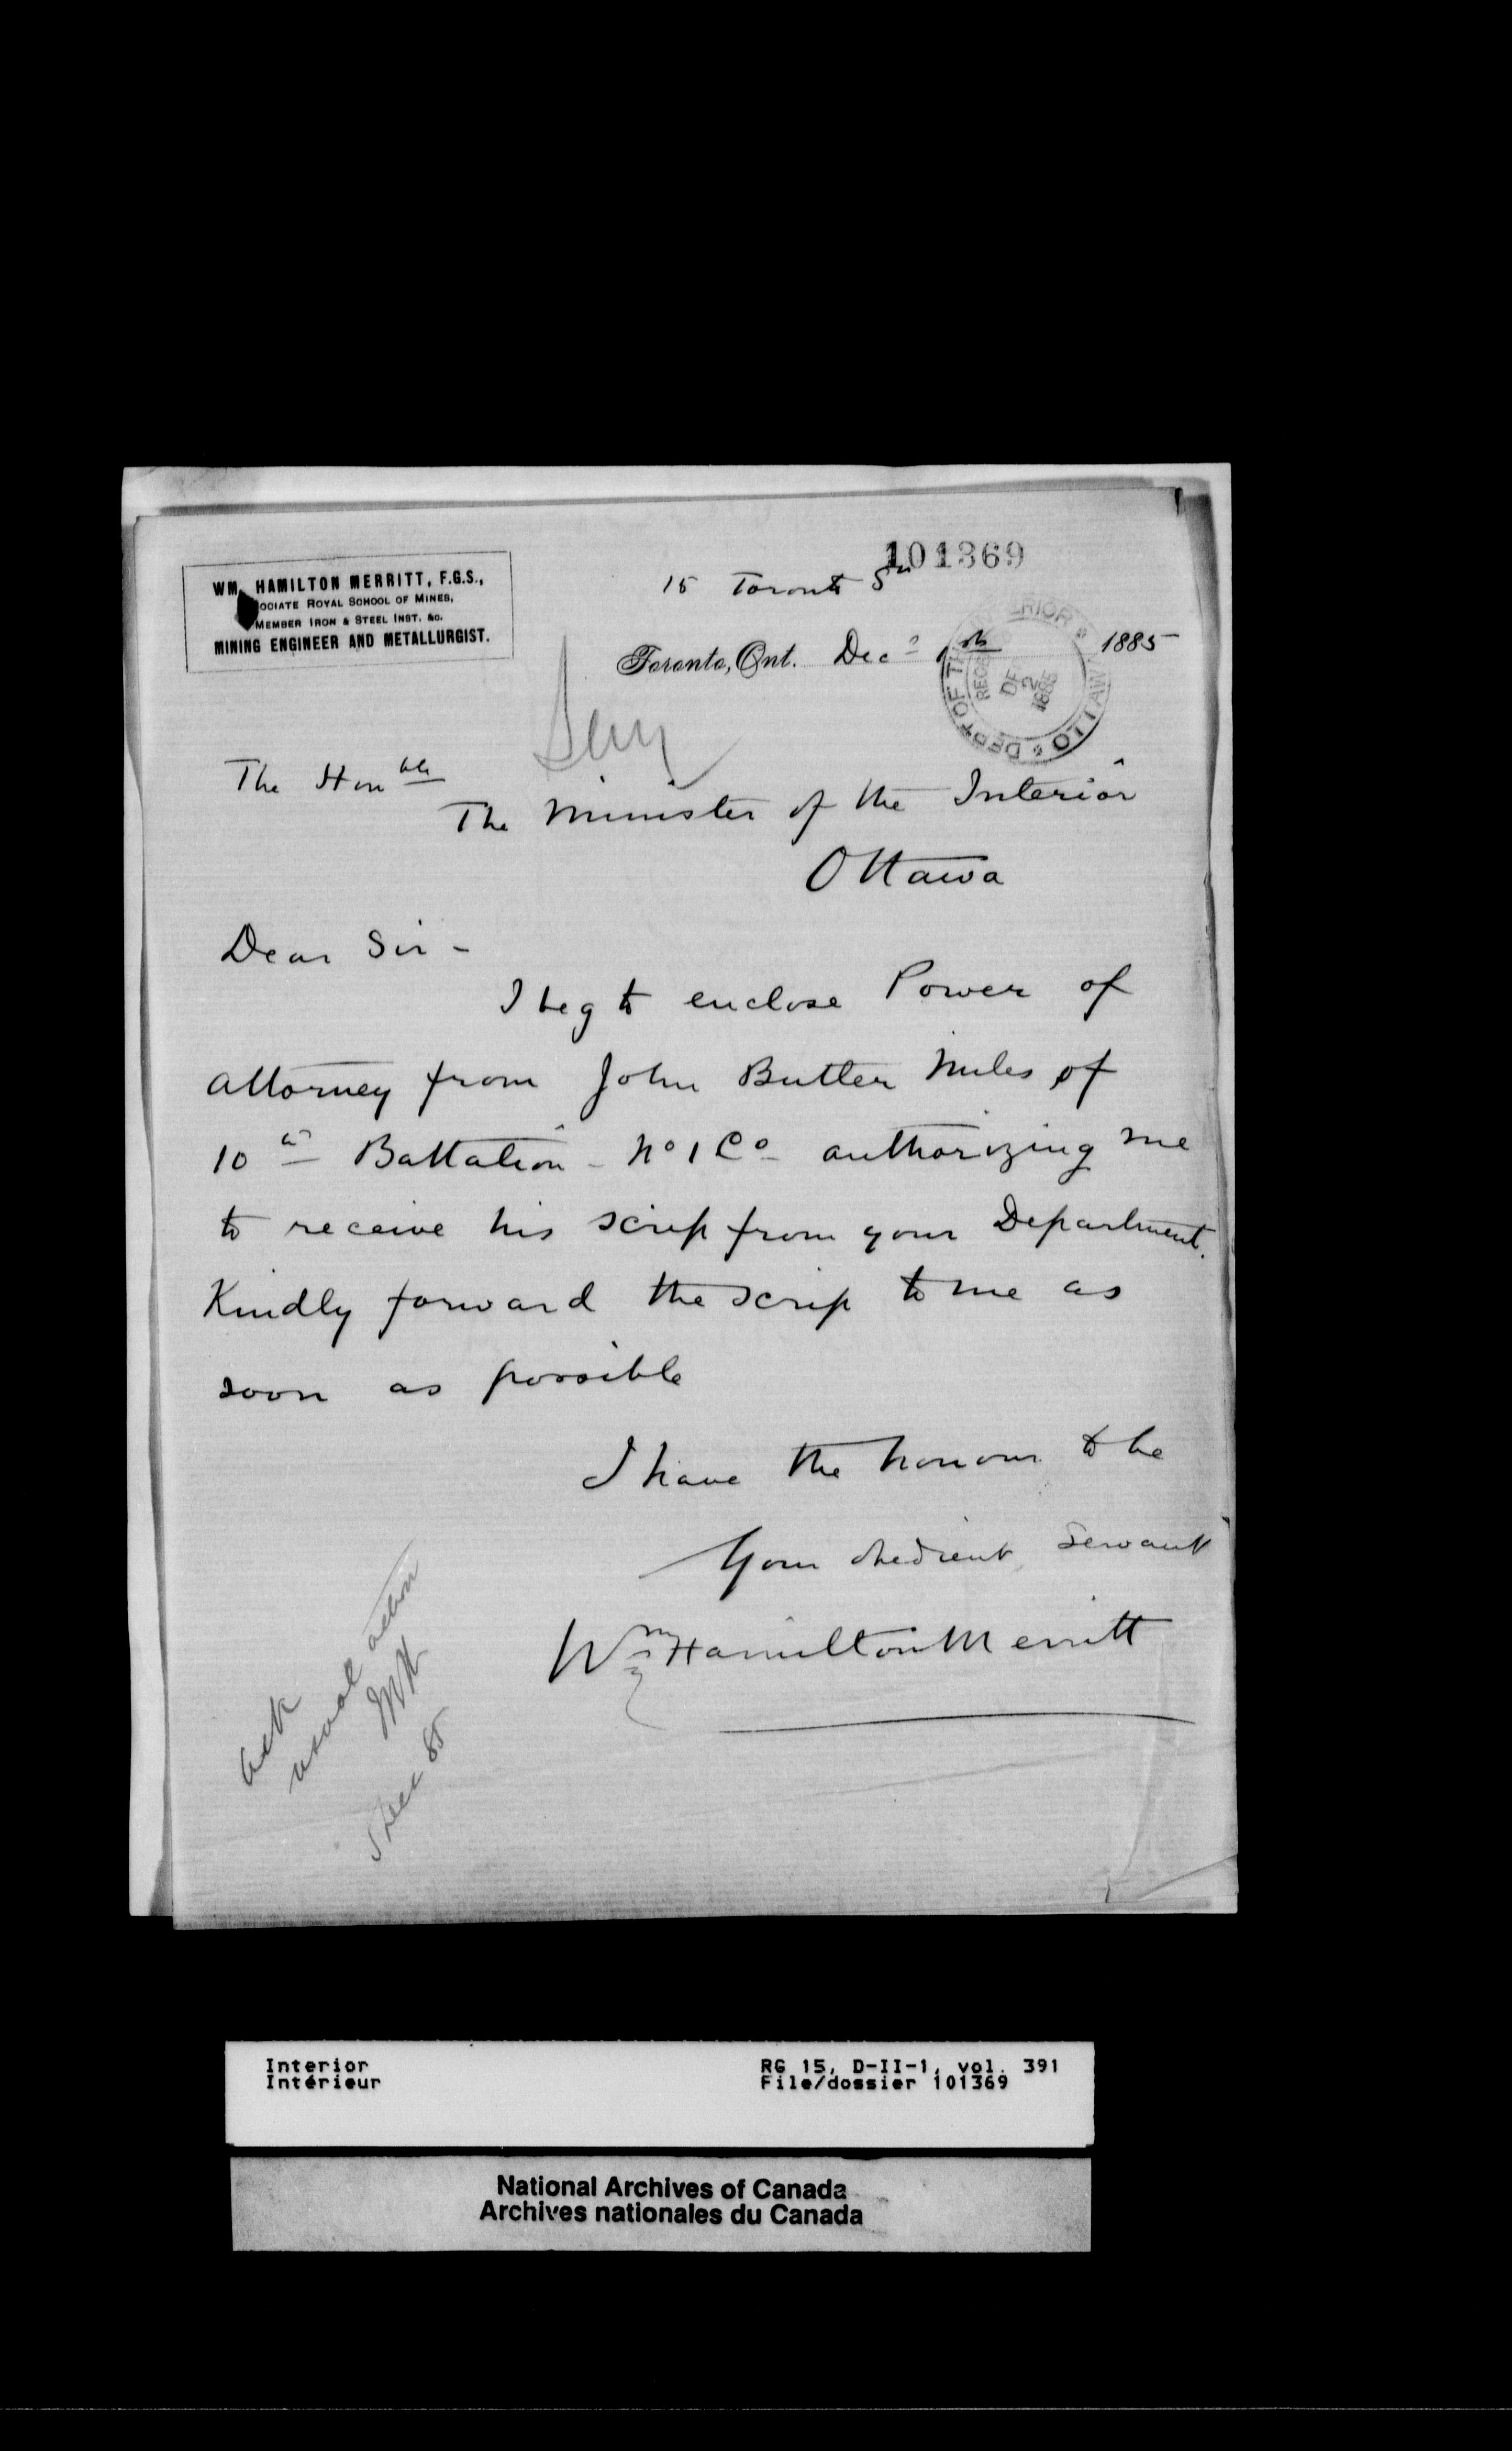 101369
WM. HAMILTON MERRITT, F.G.S.,
OCIATE ROYAL SCHOOL OF MINES,
MEMBER IRON & STEEL INST. &c.
MINING ENGINEER AND METALLURGIST.
15 Toronto St
Toronto, Ont. Dec 1st 1885
DEPT OF THE INTERIOR
OTTAWA
DE 2 1885
The Honble
The Minister of the Interior
Ottawa
Dear Sir -
I beg to enclose Power of
Attorney from John Butler Miles of
10th Battalion - No 1 Co authorizing me
to receive his scrip from your Department.
Kindly forward the scrip to me as
soon as possible
I have the honour to be
Your obedient Servant
Wm Hamilton Merritt
ack
usual action
Dec 85
Interior
Intérieur
RG 15, D-II-1, vol. 391
File/dossier 101369
National Archives of Canada
Archives nationales du Canada